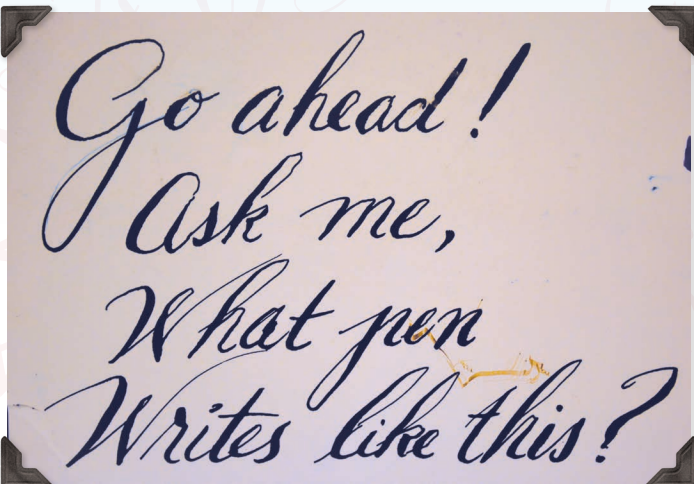 Go ahead!
Ask me,
What pen
Writes like this?